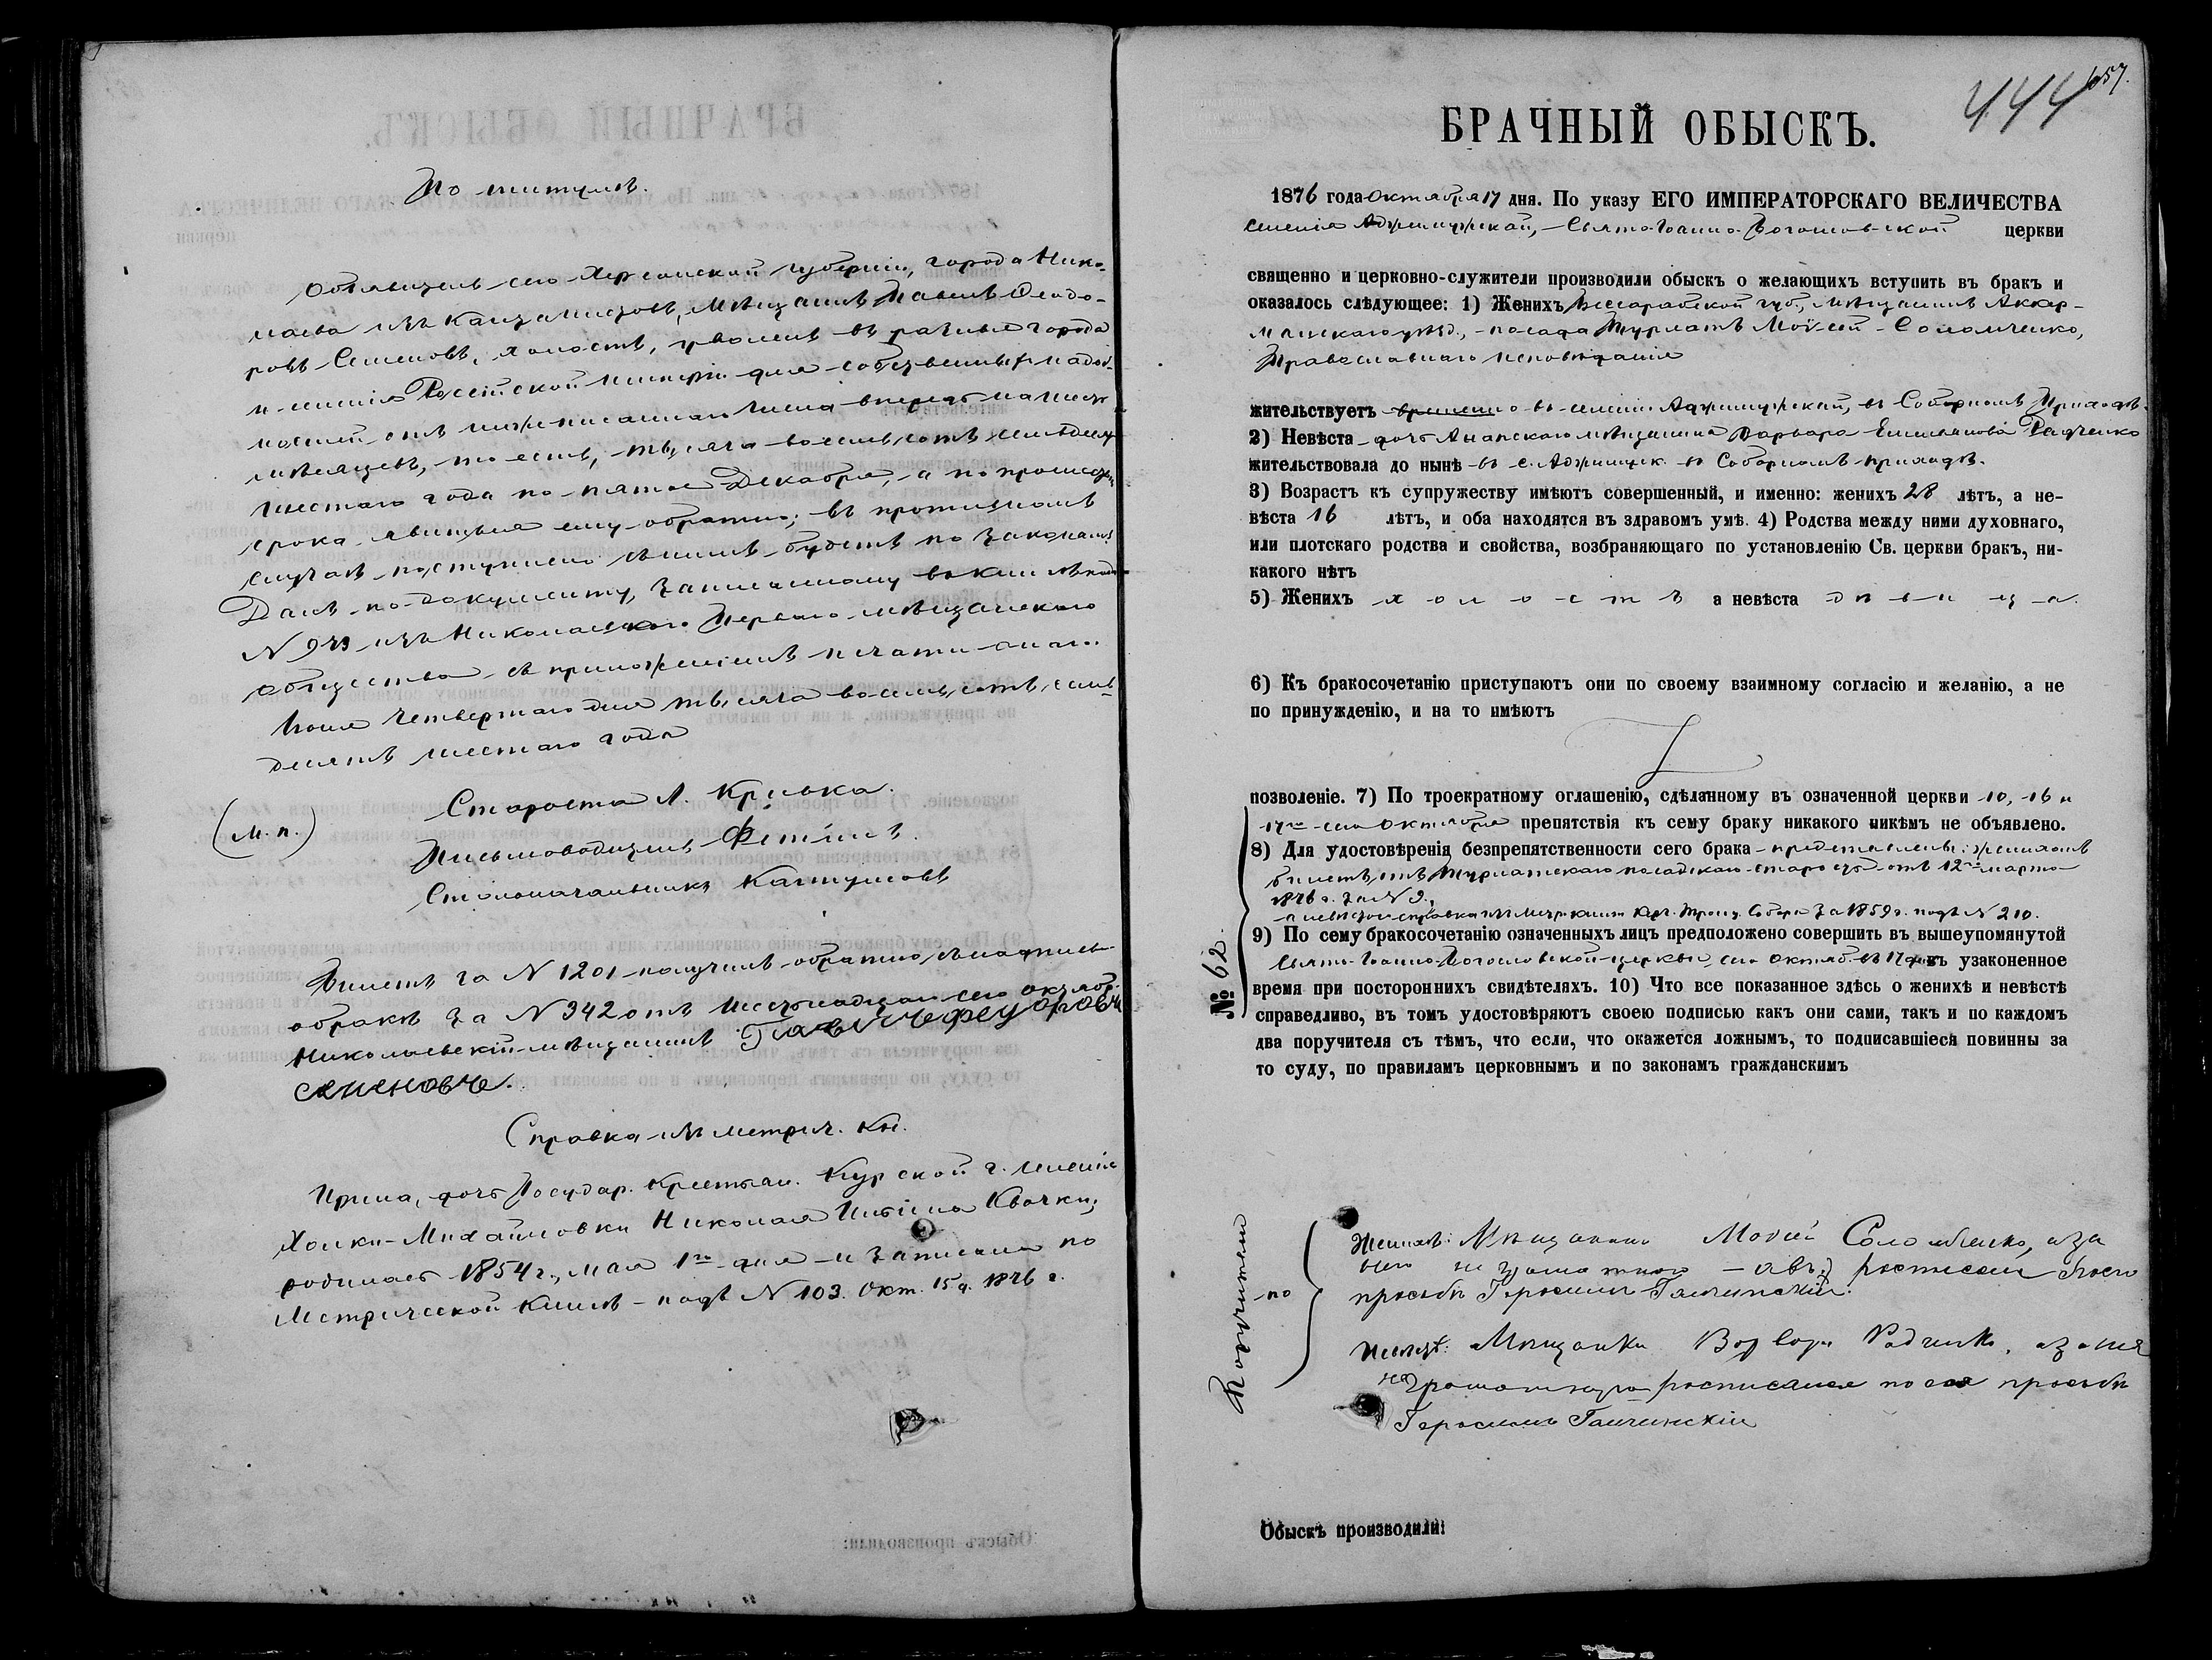 По титулѣ.
Объявитель сего Херсонской губерніи, города Нико-
лаева изъ кантонистовъ, мѣщанинъ Павелъ Ѳеодо-
ровъ Семеновъ, холостъ, уволенъ въ разные города
и селенія Россійской Имперіи для собственныхъ надоб-
ностей отъ нижеписаннаго числа впередъ на шесть
мѣсяцевъ, то есть, тысяча восемьсотъ семьдесятъ
шестаго года по пятое Декабря, а по прошествіи
срока явиться ему обратно; въ противномъ
случаѣ поступлено съ нимъ будетъ по законамъ.
Данъ по документу, записанному въ книгѣ подъ
N 973 изъ Николаевскаго Перваго мѣщанскаго
общества съ приложеніемъ печати онаго.
Іюня четвертаго дня тысяча восемьсотъ семь-
десятъ шестаго года
Староста А. Кривка.
(М. п.)
Письмоводитель Фетинъ.
Столоначальникъ
Билетъ за N 1201 получилъ обратно, съ надписью
о бракѣ за N 342 отъ шестнадцатаго сего октябр.
Николаевскій мѣщанинъ Павелъ Феудоровъ
семеновъ.
Справка изъ метрич. Кн.
Ирина, дочь Государ. Крестьян. Курской г. селенія
Холки-Михайловки Николая Квочки,
родилась 1854 г., мая 1го дня и записана по
Метрической книгѣ подъ N 103. Окт. 15 д. 1876 г.
444 657.
БРАЧНЫЙ ОБЫСКЪ.
1876 года Октября 17 дня. По указу ЕГО ИМПЕРАТОРСКАГО ВЕЛИЧЕСТВА
селенія Аджимушкай, Свято-Іоанно-Богословской церкви
священно и церковно-служители производили обыскъ о желающихъ вступить въ бракъ и
оказалось слѣдующее: 1) Женихъ Бессарабской губ., мѣщанинъ Аккер-
манскаго уѣзд., посада Турлатъ Моѵсей Соломченко,
Православнаго исповѣданія
жительствуетъ временно въ селеніи Аджимушкай, въ Соборномъ Приходѣ.
2) Невѣста дочь Анапскаго мѣщанина Варвара Емельянова Радченко
жительствовала до нынѣ въ с. Аджимушк. въ Соборномъ приходѣ.
3) Возрастъ къ супружеству имѣютъ совершенный, и именно: женихъ 28 лѣтъ, а не-
вѣста 16 лѣтъ, и оба находятся въ здравомъ умѣ. 4) Родства между ними духовнаго,
или плотскаго родства и свойства, возбраняющаго по установленію Св. церкви бракъ, ни-
какого нѣтъ
5) Женихъ холостъ а невѣста дѣвица.
6) Къ бракосочетанію приступаютъ они по своему взаимному согласію и желанію, а не
по принужденію, и на то имѣютъ
позволеніе. 7) По троекратному оглашенію, сдѣланному въ означенной церкви 10, 16 и
17го сего Октября препятствія къ сему браку никакого никѣмъ не объявлено.
8) Для удостовѣренія безпрепятственности сего брака представлены: женихомъ
билетъ отъ Турлатскаго посадскаго старосты отъ 12го марта
1876 г. за N 9,
а невѣстой справка изъ Метр. книги Керч. Троиц. Собора за 1859 г. подъ N 210.
9) По сему бракосочетанію означенныхъ лицъ предположено совершить въ вышеупомянутой
Свято-Іоанно-Богословской церкви, сего Октяб. въ 17 день въ узаконенное
время при постороннихъ свидѣтеляхъ. 10) Что все показанное здѣсь о женихѣ и невѣстѣ
справедливо, въ томъ удостовѣряютъ своею подписью какъ они сами, такъ и по каждомъ
два поручителя съ тѣмъ, что если, что окажется ложнымъ, то подписавшіеся повинны за
то суду, по правиламъ церковнымъ и по законамъ гражданскимъ
№ 62.
Поручители
по
Женихъ: Мѣщанинъ Мосей Соломченко, а за
него неграмотного росписался по его
просьбѣ Геросимъ Галчинскій.
Невѣст: Мещанка Варвара Радченко, а за нея
неграмотную росписался по ея просьбѣ
Геросимъ Галчинскій
Обыскъ производили: